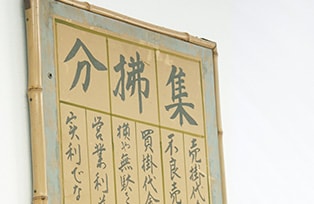 集
売掛代
不良売
拂
買掛代金
無駄
分
営業利
実利でな